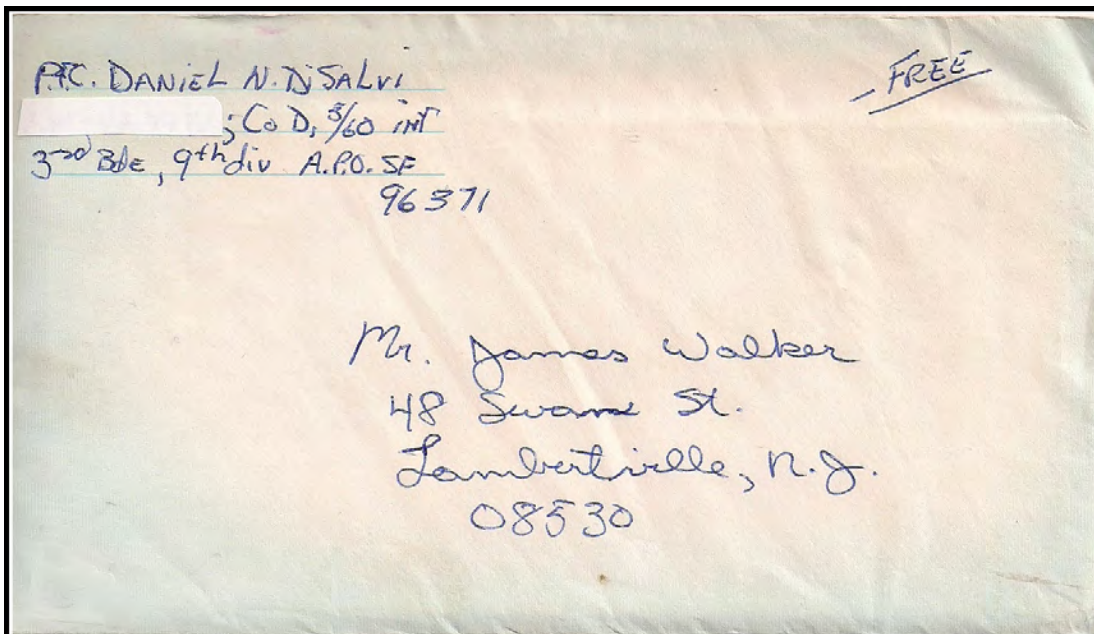 PFC. DANIEL N. DiSALVI
; Co D, 5/60 inf
3rd Bde, 9th div A.P.O. SF
96371
FREE
Mr. James Walker
48 Swan St.
Lambertville, N.J.
08530